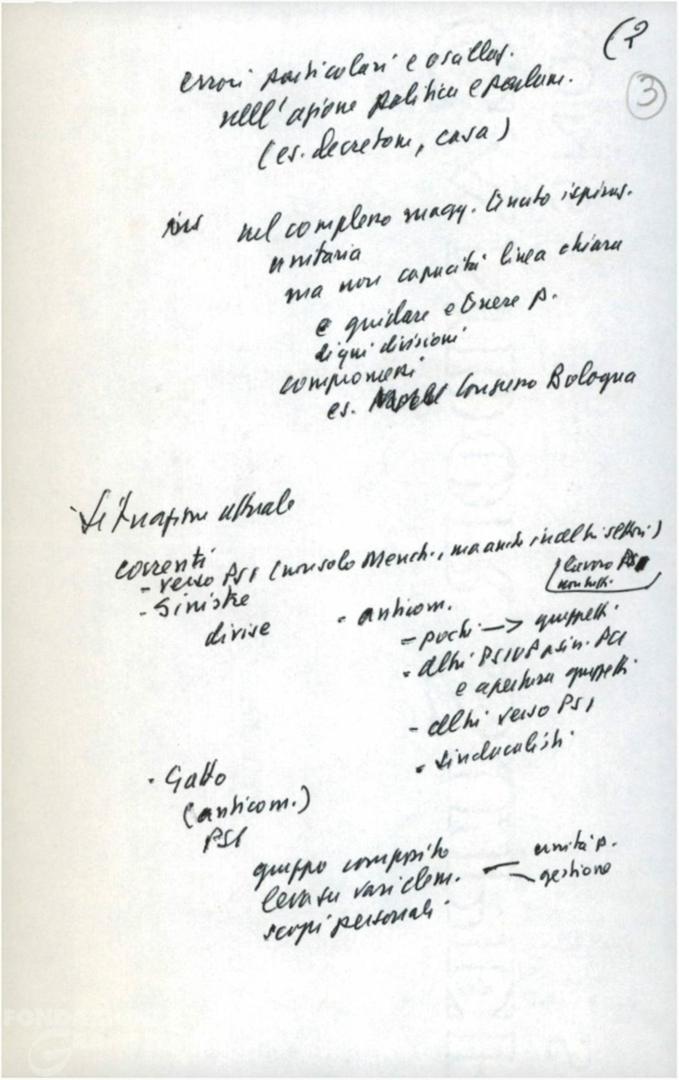 (2
3
errori particolari e oscillaz.
nell'azione politica e parlam.
(es. decretone, casa)
ins nel complesso magg. tenuto ispiraz.
unitaria
ma non capacità linea chiara
e guidare e tenere p.
di qui divisioni
compromessi
es. Consuno Bologna
Situazione attuale
correnti
- verso PSI (non solo Mench., ma anche in altri settori)
lavoro PSI
non tutti
- Sinistre
divise
- anticom.
- pochi -> gruppetti
- altri PSIUP sin. PCI
e apertura gruppetti
- altri verso PSI
- sindacalisti
- Gatto
(anticom.)
PSI
gruppo composito
leva su vari elem. - unità p.
- gestione
scopi personali
FOND
G